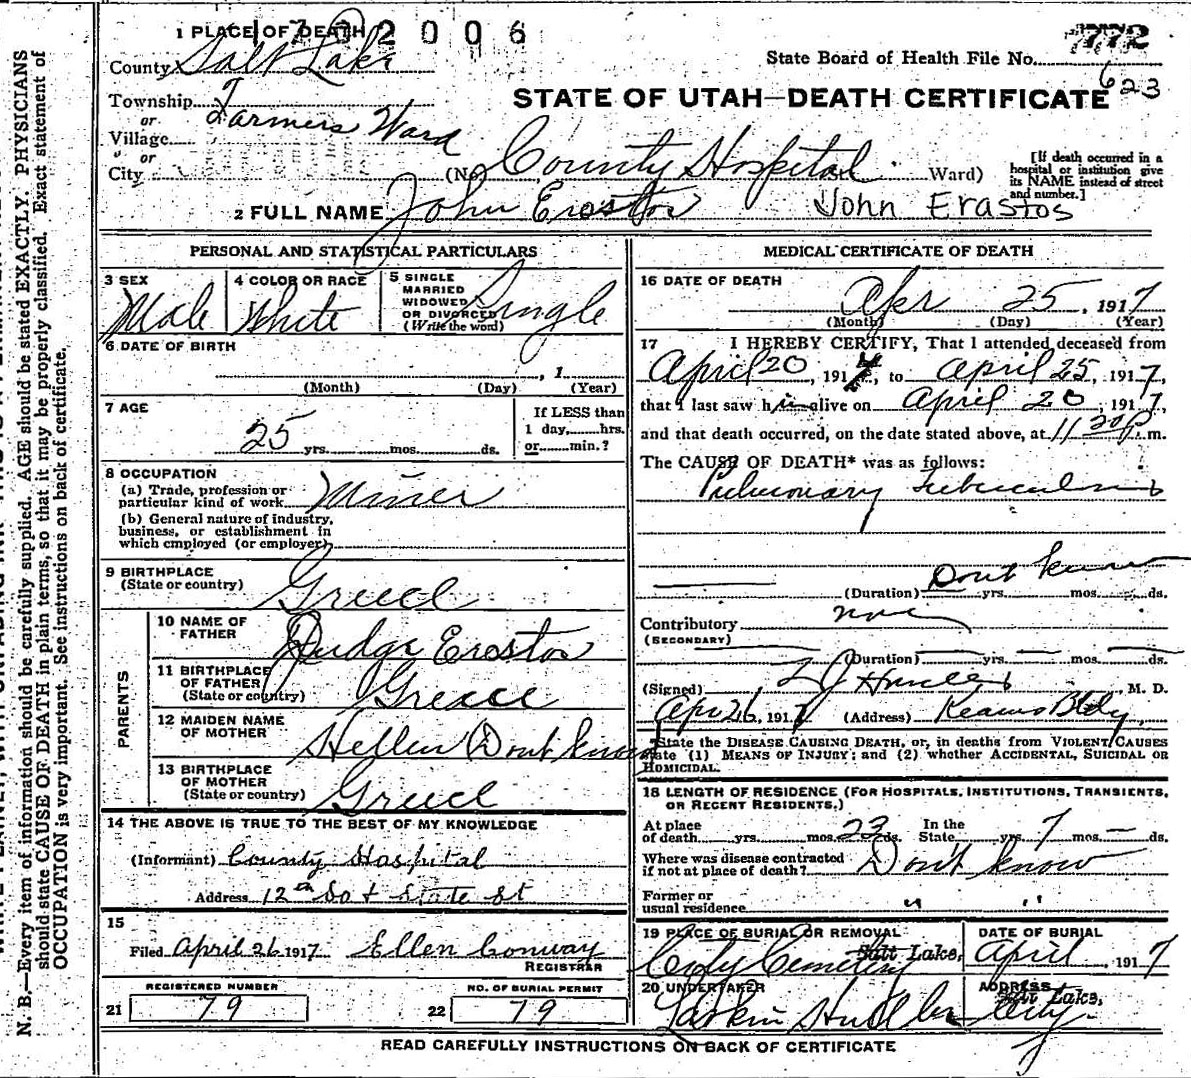 1 PLACE OF DEATH 1 7 0 2 0 0 6
772
County Salt Lake
State Board of Health File No.
623
Township
or
Farmers Ward
STATE OF UTAH—DEATH CERTIFICATE
Village
or
City (No. County Hospital Ward)
[If death occurred in a hospital or institution give its NAME instead of street and number.]
2 FULL NAME John Erastos John Erastos
PERSONAL AND STATISTICAL PARTICULARS
3 SEX Male
4 COLOR OR RACE White
5 SINGLE MARRIED WIDOWED OR DIVORCED (Write the word) Single
6 DATE OF BIRTH
, 1
(Month) (Day) (Year)
7 AGE
25 yrs. mos. ds.
If LESS than 1 day, hrs. or min.?
8 OCCUPATION
(a) Trade, profession or particular kind of work Miner
(b) General nature of industry, business, or establishment in which employed (or employer)
9 BIRTHPLACE
(State or country) Greece
PARENTS
10 NAME OF FATHER Judge Erostos
11 BIRTHPLACE OF FATHER (State or country) Greece
12 MAIDEN NAME OF MOTHER Hellen (Dont know)
13 BIRTHPLACE OF MOTHER (State or country) Greece
14 THE ABOVE IS TRUE TO THE BEST OF MY KNOWLEDGE
(Informant) County Hospital
Address 12th So + State St
15
Filed April 26 1917 Ellen Conway
REGISTRAR
REGISTERED NUMBER
21 79
NO. OF BURIAL PERMIT
22 79
MEDICAL CERTIFICATE OF DEATH
16 DATE OF DEATH
Apr 25, 1917
(Month) (Day) (Year)
17 I HEREBY CERTIFY, That I attended deceased from
April 20, 1917, to April 25, 1917,
that I last saw him alive on April 20, 1917,
and that death occurred, on the date stated above, at 11 20 P. m.
The CAUSE OF DEATH* was as follows:
Pulmonary Tuberculosis
Dont know
(Duration) yrs. mos. ds.
Contributory none
(SECONDARY)
(Duration) yrs. mos. ds.
(Signed) M. D.
Apr 26, 1917 (Address) Kearns Bldg,
*State the DISEASE CAUSING DEATH, or, in deaths from VIOLENT CAUSES
state (1) MEANS OF INJURY; and (2) whether ACCIDENTAL, SUICIDAL OR
HOMICIDAL.
18 LENGTH OF RESIDENCE (FOR HOSPITALS, INSTITUTIONS, TRANSIENTS,
OR RECENT RESIDENTS.)
At place of death yrs. mos. 23 ds. In the State yrs. 7 mos. — ds.
Where was disease contracted if not at place of death? Don't know
Former or usual residence " "
19 PLACE OF BURIAL OR REMOVAL
City Cemetery Salt Lake,
DATE OF BURIAL
April 1917
20 UNDERTAKER
Larkin
ADDRESS
Salt Lake,
City
READ CAREFULLY INSTRUCTIONS ON BACK OF CERTIFICATE
N. B.—Every item of information should be carefully supplied. AGE should be stated EXACTLY. PHYSICIANS
should state CAUSE OF DEATH in plain terms, so that it may be properly classified. Exact statement of
OCCUPATION is very important. See instructions on back of certificate.